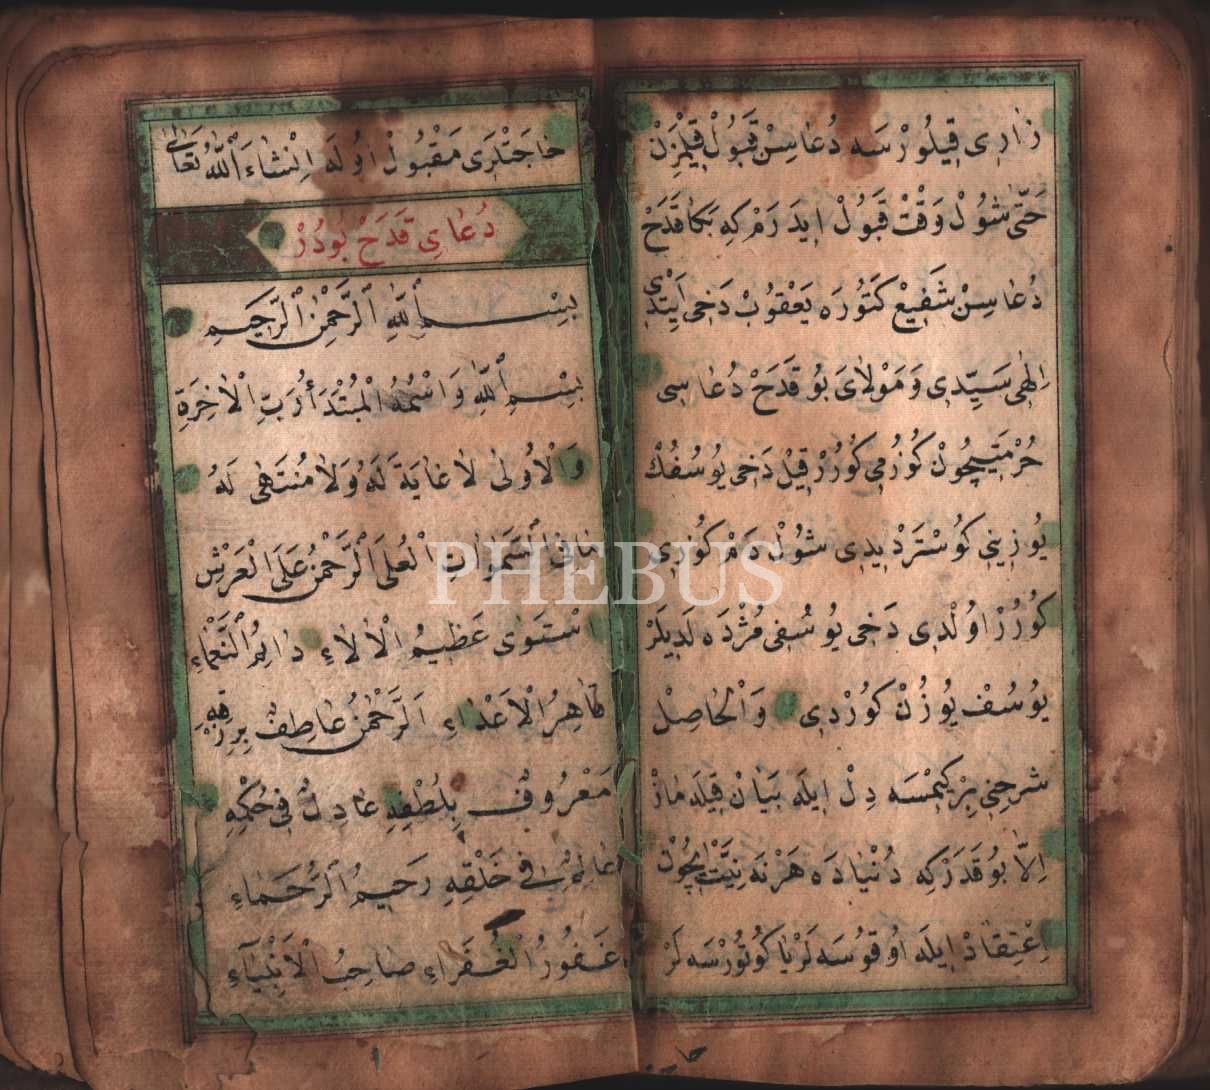 زارى قيلورسه دعاسن قبول قيلمزن
حتى شول وقت قبول ايدرم كه بكا قدح
دعاسن شفيع كتوره يعقوب دخى ايتدى
الهى سيدى ومولاى بو قدح دعاسى
حرمتيچون كوزمى كورر قيل دخى يوسفك
يوزينى كوستر ديدى شول دم كوزى
كورر اولدى دخى يوسفى مژده لديلر
يوسف يوزن كوردى والحاصل
شرحنى بر كمسه دل ايله بيان قيله ماز
الا بو قدر كه دنياده هر نه نيت ايچون
اعتقاد ايله اوقوسه لر يا كوتورسه لر
حاجتلرى مقبول اوله انشاء الله تعالى
دعاى قدح بودر
بسم الله الرحمن الرحيم
بسم الله واسمه المبتدأ رب الاخرة
والاولى لا غاية له ولا منتهى له
ما فى السموات العلى الرحمن على العرش
استوى عظيم الالاء دائم النعماء
قاهر الاعداء الرحمن عاطف برزقه
معروف بلطفه عادل فى حكمه
عالم فى خلقه رحيم الرحماء
غفور الغفراء صاحب الانبياء
PHEBUS